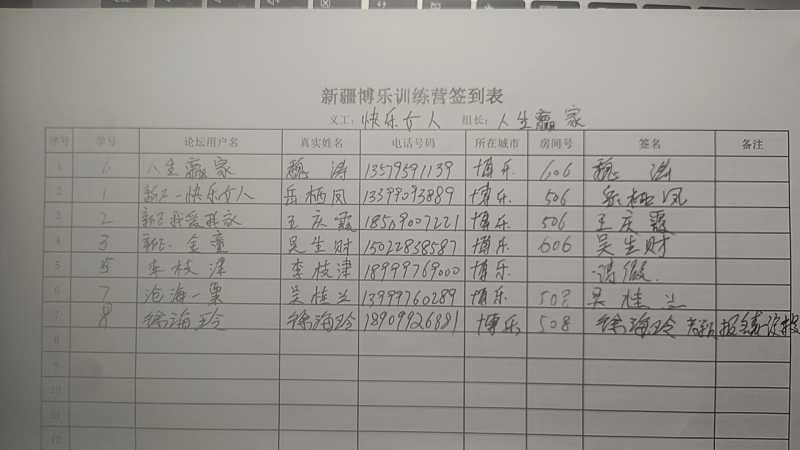 新疆博乐训练营签到表
义工：快乐女人 组长：人生赢家
序号 学号 论坛用户名 真实姓名 电话号码 所在城市 房间号 签名 备注
1 6 人生赢家 魏涛 13579591139 博乐 606 魏涛
2 1 新卫一快乐女人 岳栖凤 13399093889 博乐 506 岳栖凤
3 2 王庆霞 18509007221 博乐 506 王庆霞
4 3 金童 吴生财 15022838587 博乐 606 吴生财
5 5 李枝津 李枝津 18999769000 博乐
6 7 沧海一粟 吴桂兰 13999760289 博乐 508 吴桂兰
7 8 徐海玲 徐海玲 18909926881 博乐 508 徐海玲
8
9
10
11
12